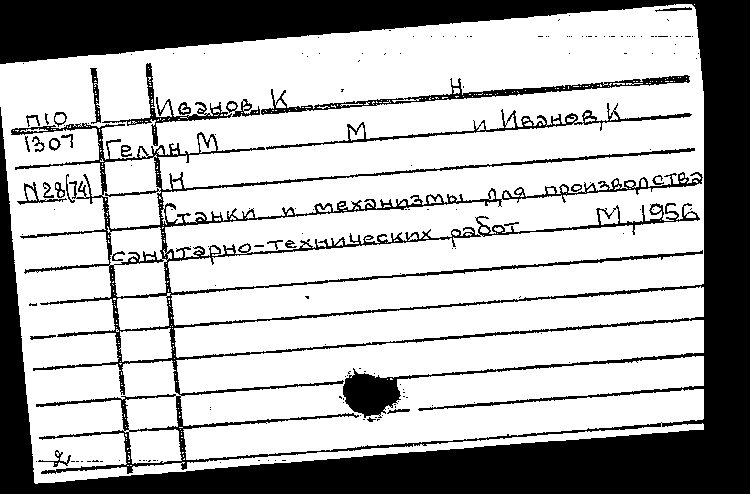 Иванов, К Н
П10
1307 Гелин, М М и Иванов, К
N28(74) Н
Станки и механизмы для производства
санитарно-технических работ М., 1956
2